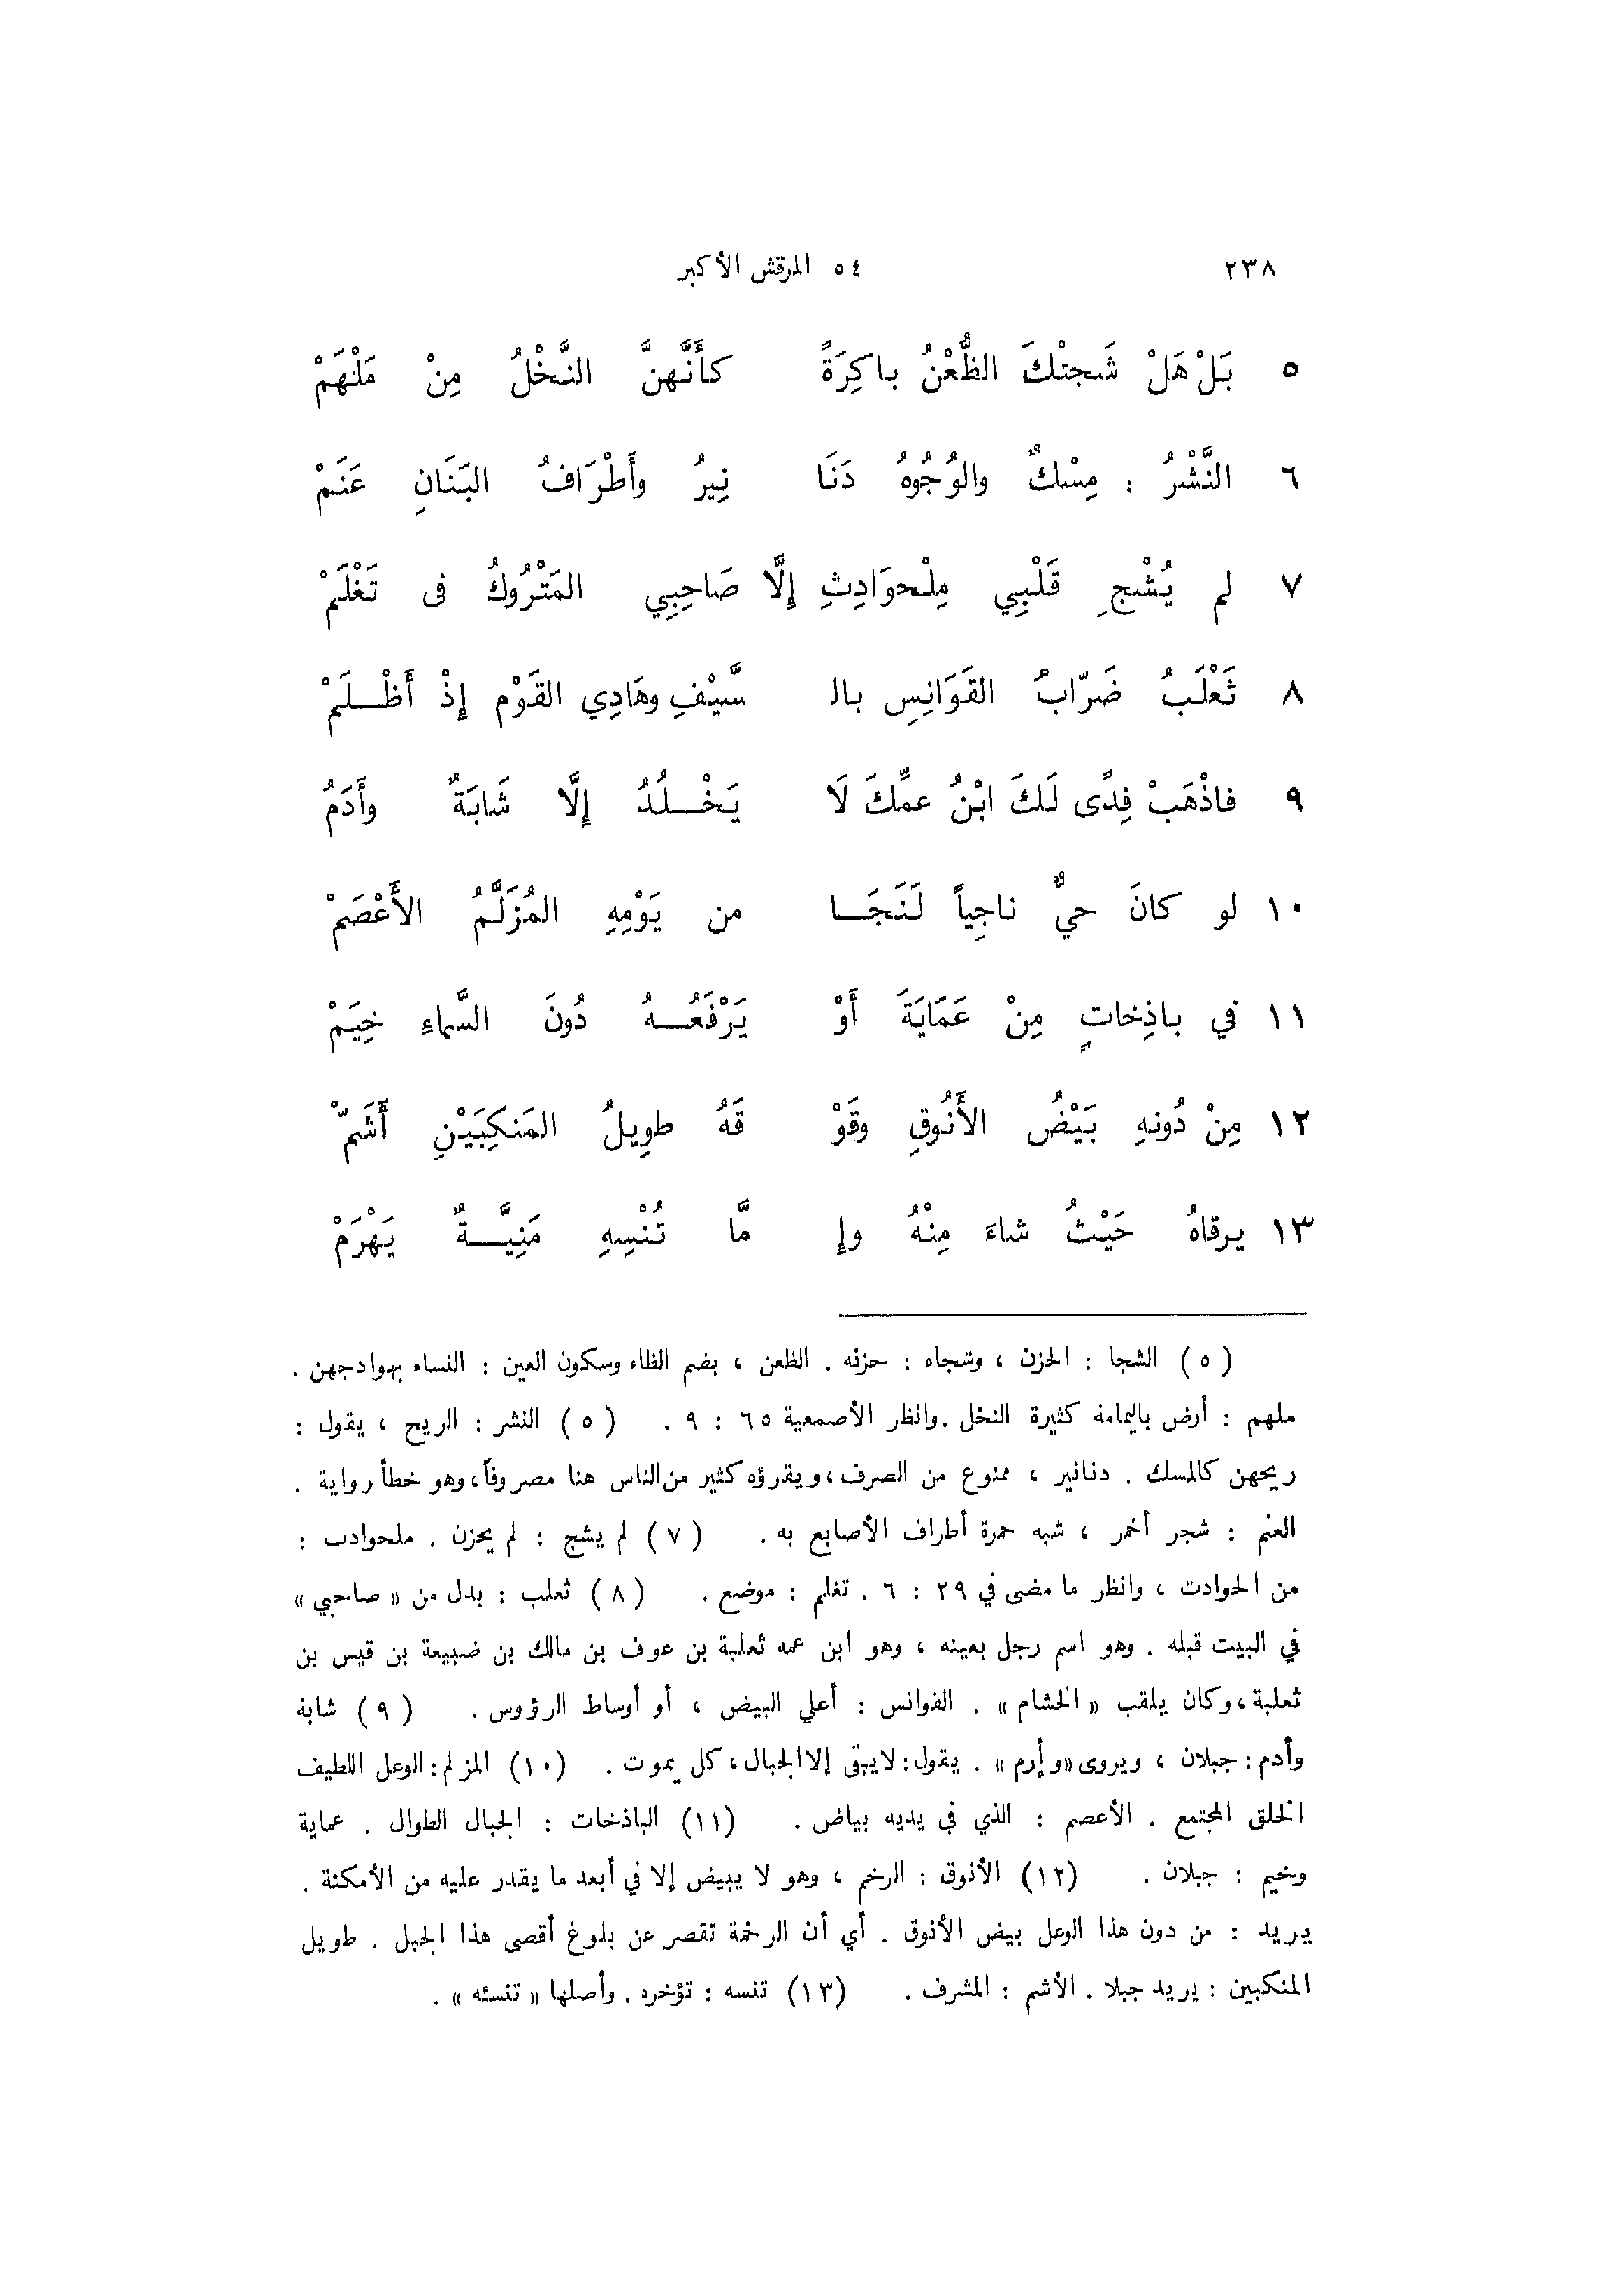 ٢٣٨ ٥٤ المرقش الأكبر
٥ بَلْ هَلْ شَجتْكَ الظُّعْنُ باكِرَةً كأَنَّهنَّ النَّخْلُ مِنْ مَلْهَمْ
٦ النَّشْرُ : مِسْكٌ والوُجُوهُ دَنَا نِيرُ وأَطْرَافُ البَنَانِ عَنَمْ
٧ لم يُشْجِ قَلْبِي مِلْحوَادِثِ إِلَّا صَاحِبِي المَتْرُوكُ فى تَغْلَمْ
٨ ثَعْلَبُ ضَرّابُ القَوَانِسِ بالـ سَّيْفِ وهَادِي القَوْمِ إِذْ أَظْـلَمْ
٩ فاذْهَبْ فِدًى لَكَ ابْنُ عمِّكَ لَا يَخْـلُدُ إِلَّا شَابَةٌ وأَدَمُ
١٠ لو كانَ حيٌّ ناجِياً لَنَجَـا من يَوْمِهِ المُزَلَّمُ الأَعْصَمْ
١١ في باذِخاتٍ مِنْ عَمَايَةَ أَوْ يَرْفَعُـهُ دُونَ السَّماءِ خِيَمْ
١٢ مِنْ دُونهِ بَيْضُ الأَنُوقِ وفَوْ قَهُ طوِيلُ المَنكِبَيْنِ أَشَمّْ
١٣ يرقاهُ حَيْثُ شاءَ مِنْهُ وإِ مَّا تُنْسِهِ مَنِيَّـةٌ يَهْرَمْ
(٥) الشجا : الحزن ، وشجاه : حزنه . الظعن ، بضم الظاء وسكون العين : النساء بهوادجهن .
ملهم : أرض باليمامة كثيرة النخل . وانظر الأصمعية ٦٥ : ٩ . (٥) النشر : الريح ، يقول :
ريحهن كالمسك . دنانير ، ممنوع من الصرف، ويقرؤه كثير من الناس هنا مصروفاً، وهو خطأ رواية .
العنم : شجر أحمر ، شبه حمرة أطراف الأصابع به . (٧) لم يشج : لم يحزن . ملحوادث :
من الحوادث ، وانظر ما مضى في ٢٩ : ٦ . تغلم : موضع . (٨) ثعلب : بدل من « صاحبي »
في البيت قبله . وهو اسم رجل بعينه ، وهو ابن عمه ثعلبة بن عوف بن مالك بن ضبيعة بن قيس بن
ثعلبة، وكان يلقب « الخشام » . القوانس : أعلي البيض ، أو أوساط الرؤوس . (٩) شابة
وأدم : جبلان ، ويروى «وإرم» . يقول: لا يبقى إلا الجبال، كل يموت . (١٠) المزلم: الوعل اللطيف
الخلق المجتمع . الأعصم : الذي في يديه بياض . (١١) الباذخات : الجبال الطوال . عماية
وخيم : جبلان . (١٢) الأنوق : الرخم ، وهو لا يبيض إلا في أبعد ما يقدر عليه من الأمكنة .
يريد : من دون هذا الوعل بيض الأنوق . أي أن الرخمة تقصر عن بلوغ أقصى هذا الجبل . طويل
المنكبين : يريد جبلا . الأشم : المشرف . (١٣) تنسه : تؤخره . وأصلها « تنسئه » .